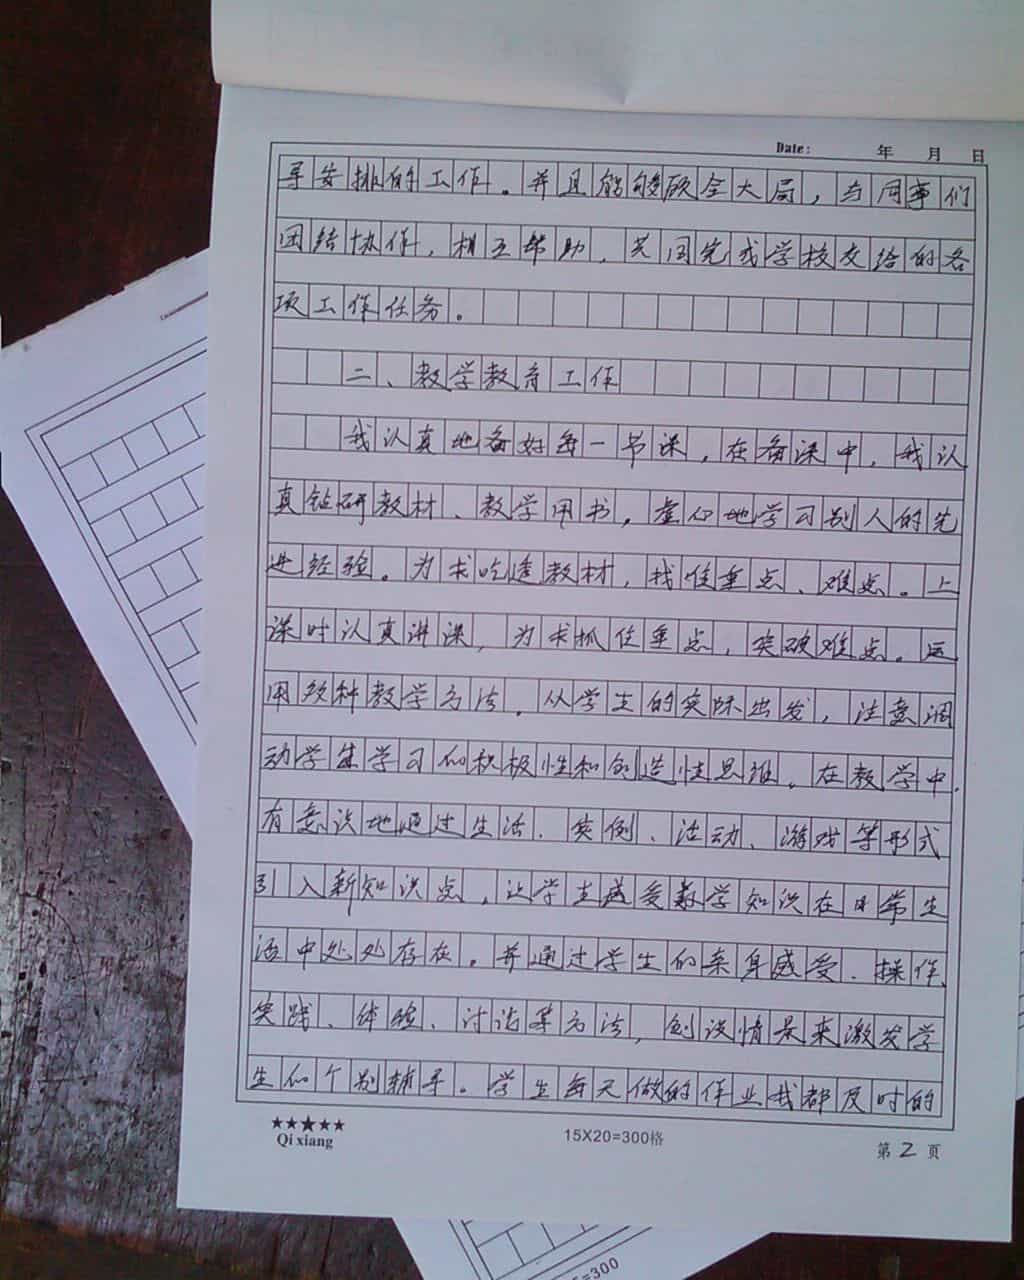 Date: 年 月 日
导安排的工作。并且能够顾全大局,与同事们
团结协作,相互帮助,共同完成学校交给的各
项工作任务。
二、教学教育工作
我认真地备好每一节课,在备课中,我认
真钻研教材、教学用书,虚心地学习别人的先
进经验。力求吃透教材,找准重点、难点。上
课时认真讲课,力求抓住重点,突破难点。运
用多种教学方法。从学生的实际出发,注意调
动学生学习的积极性和创造性思维。在教学中,
有意识地通过生活、实例、活动、游戏等形式
引入新知识点,让学生感受数学知识在日常生
活中处处存在。并通过学生的亲身感受、操作、
实践、体验、讨论等方法,创设情景来激发学
生的个别辅导。学生每天做的作业我都及时的
★★★★★
Qi xiang
15X20=300格
第 2 页
=300